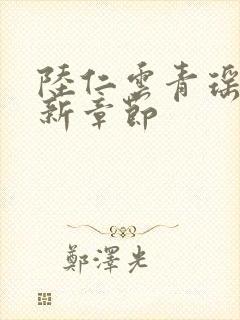 陸仁雲青瑤
新章節
鄭澤光